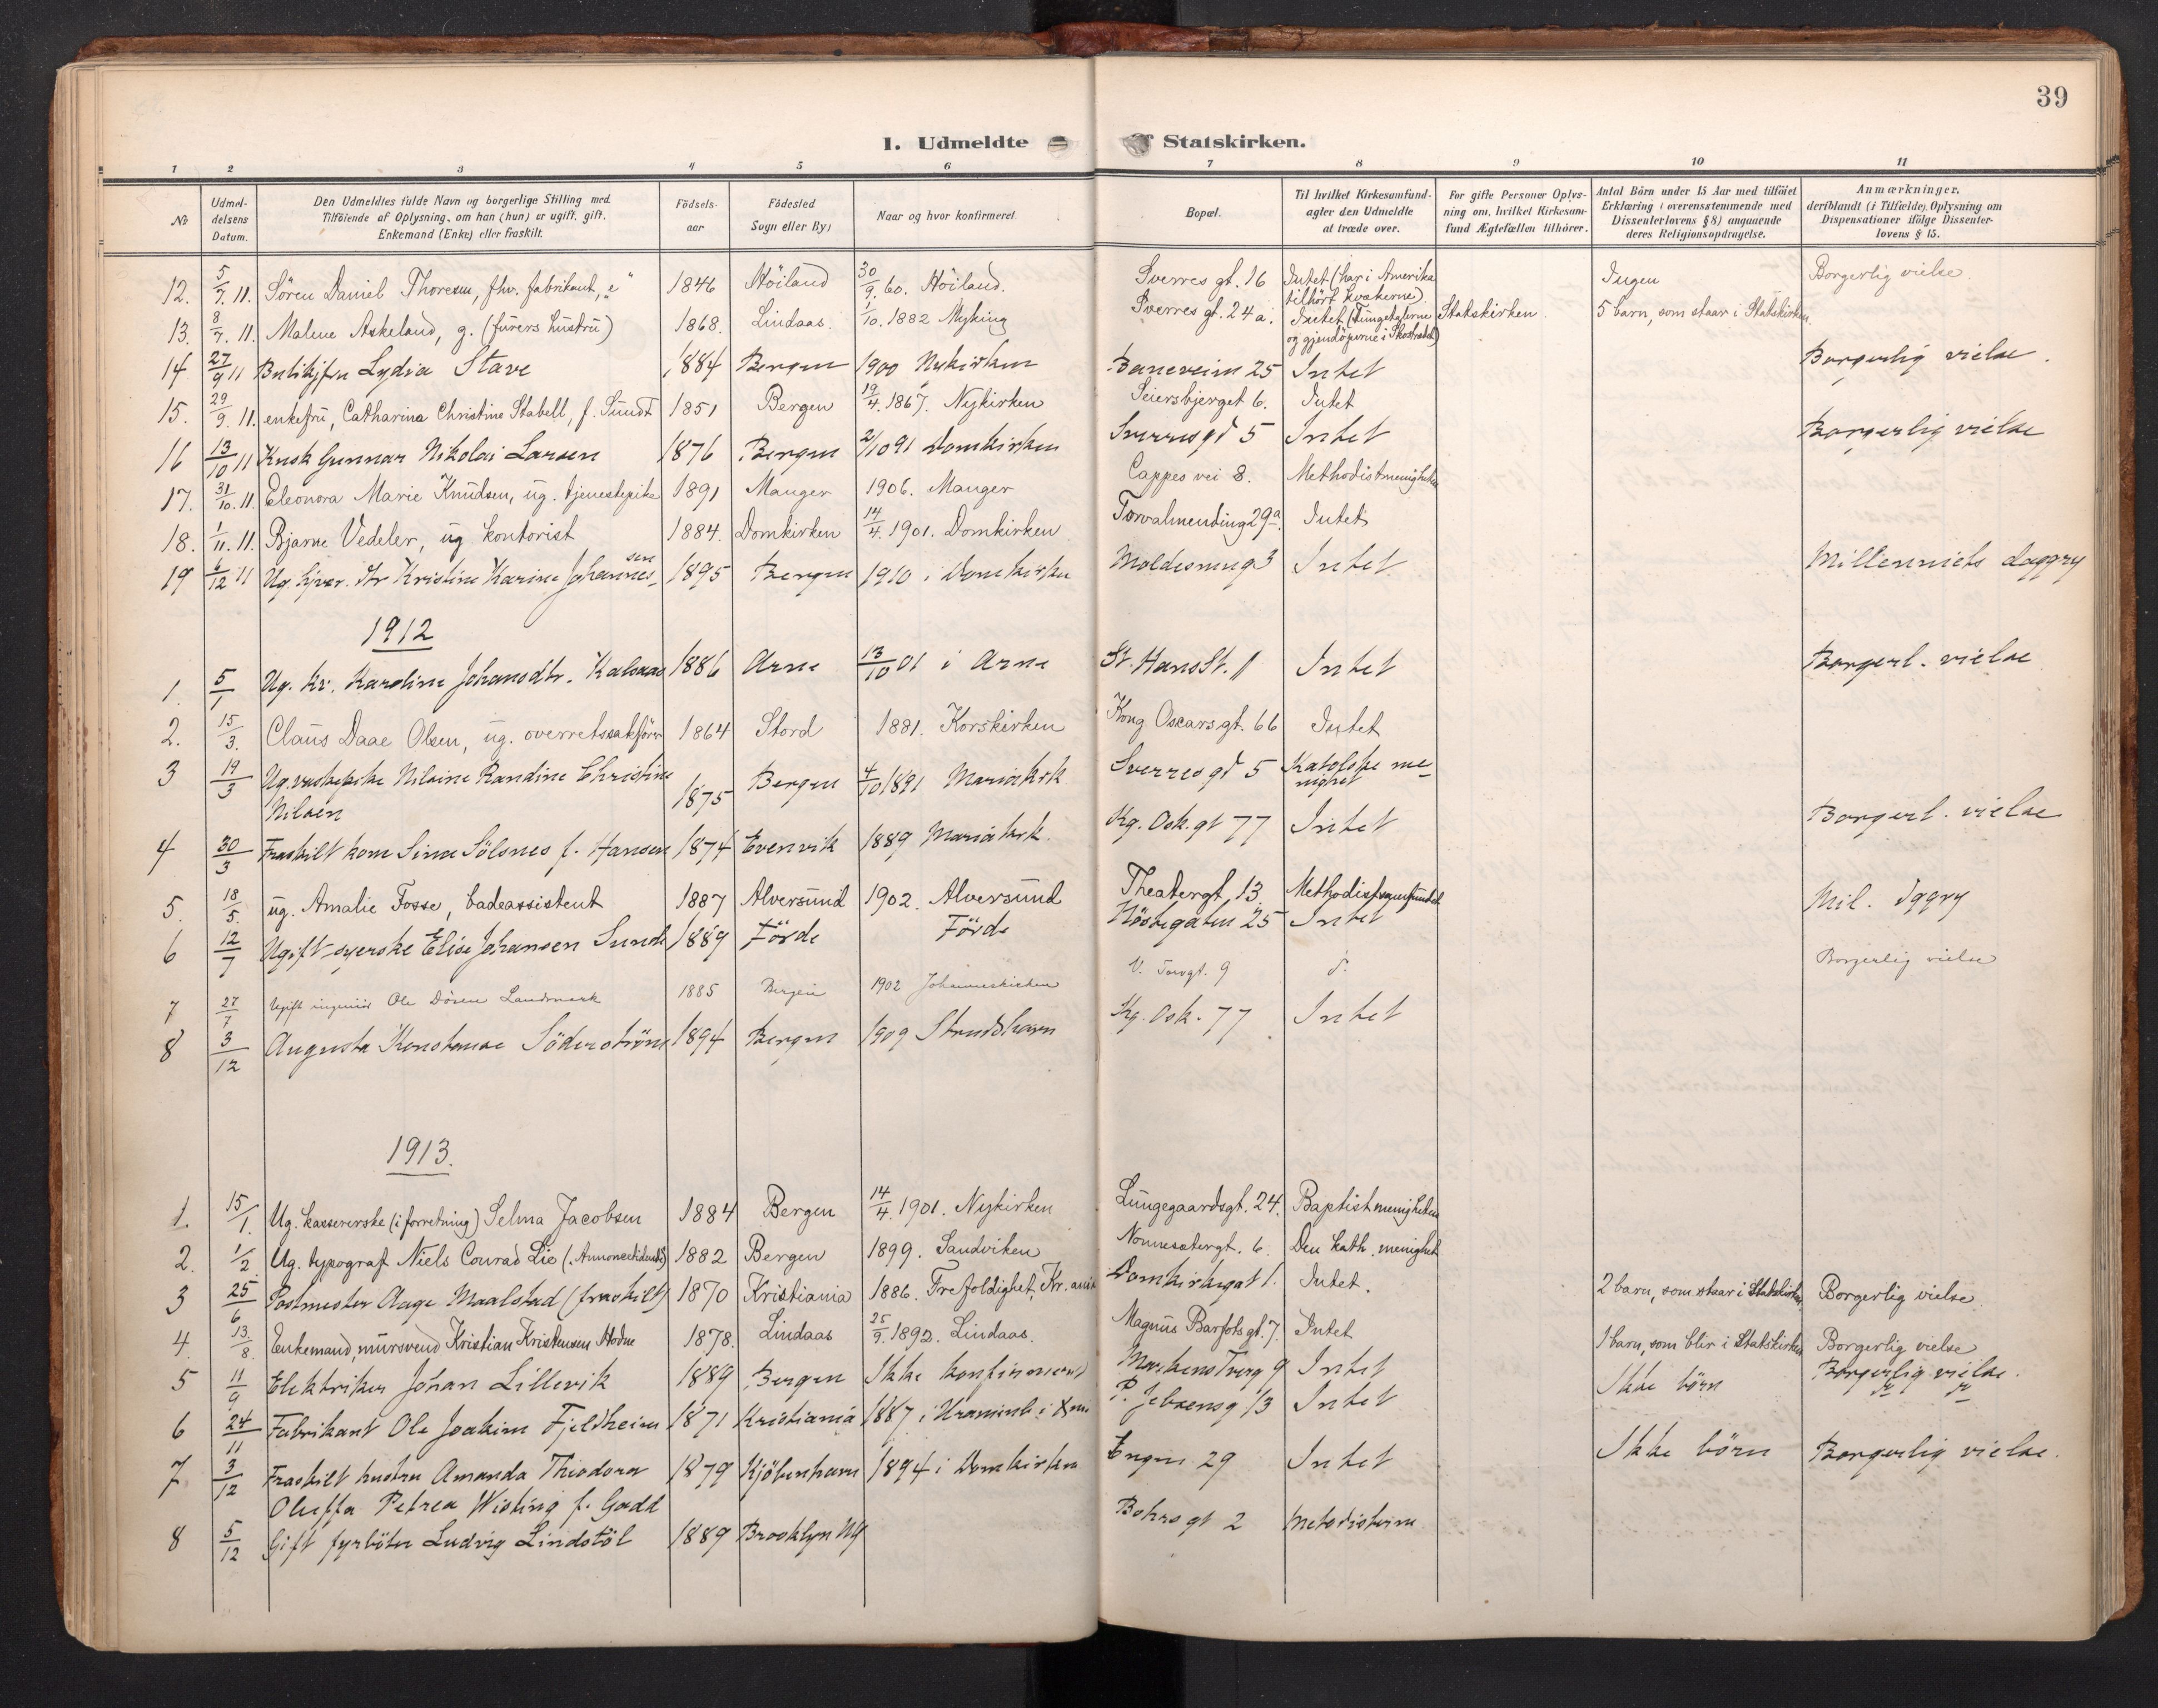 39
1. Udmeldte af Statskirken.
1 2 3 4 5 6 7 8 9 10 11
No
Udmeldelsens Datum.
Den Udmeldtes fulde Navn og borgerlige Stilling med Tilföiende af Oplysning, om han (hun) er ugift, gift, Enkemand (Enke) eller fraskilt.
Födselsaar
Födested Sogn eller By)
Naar og hvor konfirmeret.
Bopæl.
Til hvilket Kirkesamfund agter den Udmeldte at træde over.
For gifte Personer Oplysning om, hvilket Kirkesamfund Ægtefællen tilhører.
Antal Börn under 15 Aar med tilföiet Erklæring (overensstemmende med Dissenterlovens § 8) angaaende deres Religionsopdragelse.
Anmærkninger, deriblandt (i Tilfælde) Oplysning om Dispensationer ifölge Dissenterlovens § 15.
12. 5/7. 11. Sören Daniel Thoresen, fhv. fabrikant, "e" 1846 Höiland 30/9. 60. Höiland. Sverres gt. 16 Intet (har i Amerika tilhört kvækerne). Ingen Borgerlig vielse.
13. 8/7. 11. Malene Askeland, g. (furers hustru) 1868. Lindaas. 1/10. 1882 Myking Sverres gt. 24a. Intet (Tungetalerne og gjendöperne i Skostrædet) Statskirken. 5 barn, som staar i Statskirken.
14 27/9 11 Butikjfrn Lydia Stave 1884 Bergen 1900 Nykirken Baneveien 25 Intet Borgerlig vielse.
15. 29/9. 11. enkefru, Catharina Christine Stabell, f. Sundt 1851 Bergen 19/4. 1867. Nykirken Seiersbjerget 6. Intet
16 13/10 11 Kusk Gunnar Nikolai Larsen 1876 Bergen 2/10 91 Domkirken Sverresgt 5 Intet Borgerlig vielse
17. 31/10. 11. Eleonora Marie Knudsen, ug. tjenestepike 1891 Manger 1906. Manger Cappes vei 8. Methodistmenigheten
18. 1/11. 11. Bjarne Vedeler, ug kontorist 1884. Domkirken 14/4. 1901. Domkirken Torvalmending 29a. Intet
19 6/12 11 Ug. Kristine Karine Johannessen 1895 Bergen 1910 i Domkirken 3 Intet Millenniets daggry
1912
1. 5/1 Ug. kv. Karoline Johansdtr. Kalsaas 1886 Arne 13/10 01 i Arne St. Hans St. 11 Intet Borgerl. vielse
2. 15/3. Claus Daae Olsen, ug. overretssakförer 1864 Stord 1881. Korskirken Kong Oscarsgt. 66 Intet
3 19/3 Ug. vaskepike Nilsine Randine Christine Nilsen 1875 Bergen 4/10 1891 Mariakirk Sverresgt 5 Katolske menighet
4 30/3 Fraskilt kone Sina Sölsnes f. Hansen 1874 Evenvik 1889 Mariakirk. Kg. Osk. gt 77 Intet Borgerl. vielse
5. 18/5. ug. Amalie Fosse, badeassistent 1887 Alversund 1902. Alversund Theatergt. 13. Methodistsamfundet
6 12/7 Ugift syerske Elise Johansen Sunde 1889 Förde Förde Höstegaten 25 Intet Mil. dggry
7 27/7 Ugift ingeniör Ole Dösen Landmark 1885 Bergen 1902 Johanneskirken V. Torvgt. 9 d. Borgerlig vielse
8 3/12 Augusta Konstanse Söderström 1894 Bergen 1909 Strudshavn Kg. Osk. 77 Intet
1913.
1. 15/1. Ug. kassererske (i forretning) Selma Jacobsen 1884 Bergen 14/4. 1901. Nykirken Lungegaardsgt. 24. Baptistmenigheten
2. 1/2 Ug. typograf Niels Conrad Lie (Annoncetidende) 1882 Bergen 1899. Sandviken Nonnesetergt. 6. Den kath. menighet
3 25/6 Postmester Aage Maalstad (fraskilt) 1870 Kristiania 1886. Trefoldighet, Kr.ania Domkirkegat 1. Intet. 2 barn, som staar i Statskirken Borgerlig vielse.
4. 13/8. Enkemand, mursvend Kristian Kristensen Hodne 1878. Lindaas 25/9. 1892. Lindaas. Magnus Barfots gt. 7. Intet 1 barn, som blir i Statskirken Borgerlig vielse
5 11/9 Elektriker Johan Lillevik 1889 Bergen Ikke konfirmeret 9 Intet Ikke börn Borgerlig vielse.
6 24/11 Fabrikant Ole Joakim Fjeldheim 1871 Kristiania 1887 i P. Jebsensg 13 Intet
7 3/12 Fraskilt hustru Amanda Theodora Oluffa Petrea Wisting f. Gadd 1879 Kjöbenhavn 1894 i Domkirken Engen 29 Intet Ikke börn Borgerlig vielse.
8 5/12 Gift fyrböter Ludvig Lindstöl 1889 Brooklyn NY Bohrs gt 2 Metodisterne